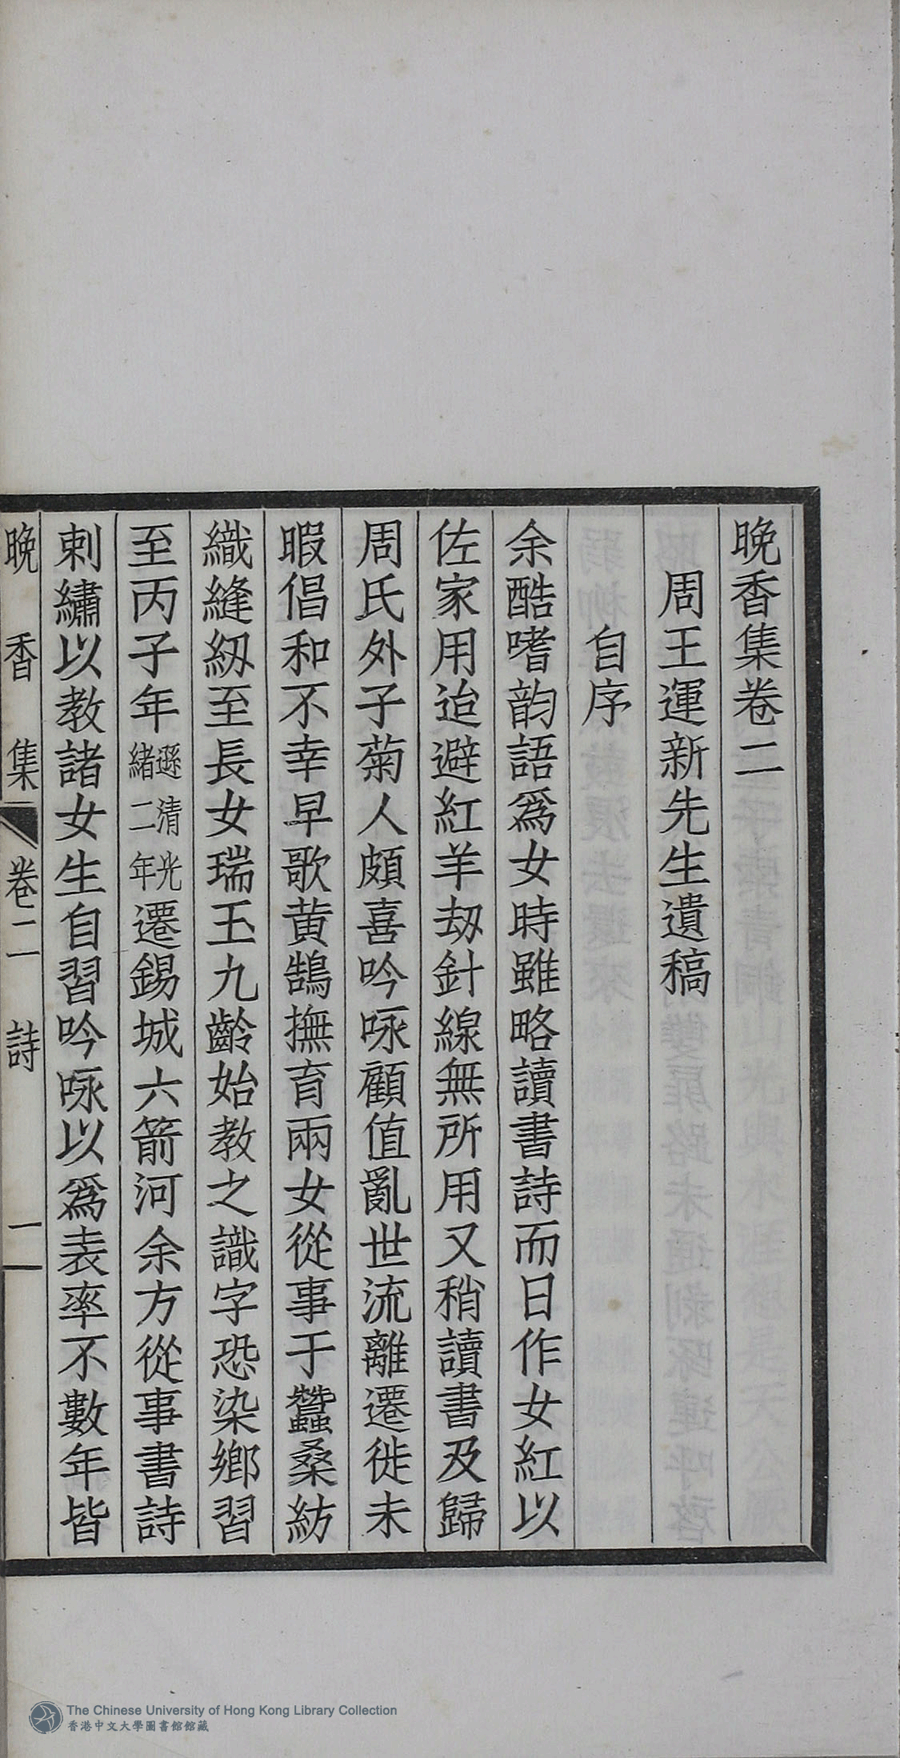 晚香集卷二
周王運新先生遺稿
自序
余酷嗜韵語爲女時雖略讀書詩而日作女紅以
佐家用迨避紅羊劫針線無所用又稍讀書及歸
周氏外子菊人頗喜吟咏顧值亂世流離遷徙未
暇倡和不幸早歌黃鵠撫育兩女從事于蠶桑紡
織縫紉至長女瑞玉九齡始教之識字恐染鄉習
至丙子年遜清光緒二年遷錫城六箭河余方從事書詩
刺繡以教諸女生自習吟咏以爲表率不數年皆
晚香集 卷二 詩 一
The Chinese University of Hong Kong Library Collection
香港中文大學圖書館館藏